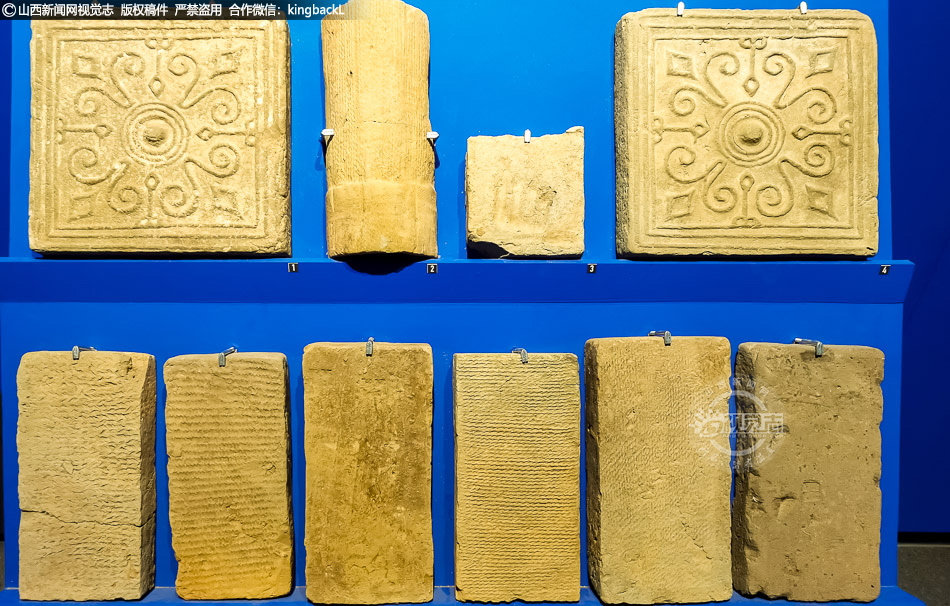 ©山西新闻网视觉志 版权稿件 严禁盗用 合作微信：kingbackL
1
2
3
4